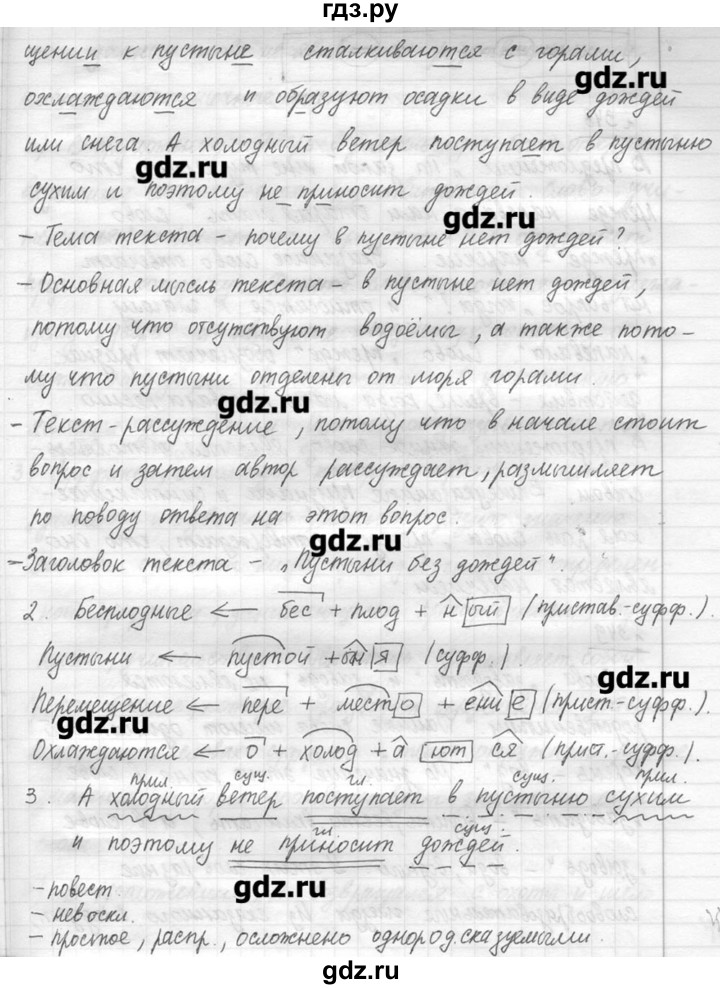 гдз.ру
щении к пустыне сталкиваются с горами,
gdz.ru
охлаждаются и образуют осадки в виде дождей
или снега. А холодный ветер поступает в пустыню
gdz.ru
сухим и поэтому не приносит дождей.
gdz.ru
– Тема текста – почему в пустыне нет дождей?
– Основная мысль текста – в пустыне нет дождей,
gdz.ru
потому что отсутствуют водоёмы, а также пото-
му что пустыни отделены от моря горами.
gdz.ru
– Текст-рассуждение, потому что в начале стоит
вопрос и затем автор рассуждает, размышляет
по поводу ответа на этот вопрос.
gdz.ru
– Заголовок текста – „Пустыни без дождей"
2. Бесплодные ← бес + плод + н ый (пристав.-суфф.).
Пустыни ← пустой + ын я (суфф.)
gdz.ru
Перемещение ← пере + мест о + ени е (прист.-суфф.).
gdz.ru
Охлаждаются ← о + холод + а ют ся (прист.-суфф.).
прил. сущ. гл. сущ. прил.
3. А холодный ветер поступает в пустыню сухим
гл. сущ.
и поэтому не приносит дождей.
– повест.
gdz.ru
– невоскл.
– простое, распр., осложнено однород. сказуемыми.
gdz.ru